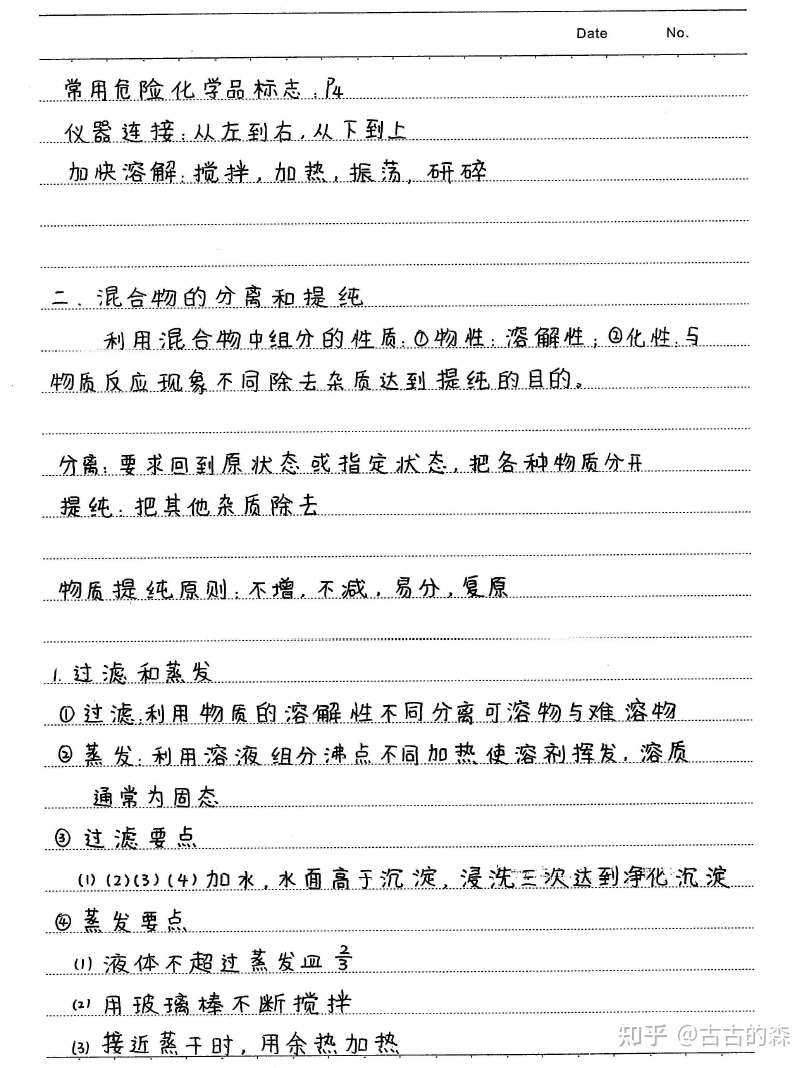 Date No.
常用危险化学品标志：P4
仪器连接：从左到右，从下到上
加快溶解：搅拌，加热，振荡，研碎
二．混合物的分离和提纯
利用混合物中组分的性质：①物性：溶解性；②化性：与
物质反应现象不同除去杂质达到提纯的目的。
分离：要求回到原状态或指定状态，把各种物质分开
提纯：把其他杂质除去
物质提纯原则：不增，不减，易分，复原
1. 过滤和蒸发
①过滤：利用物质的溶解性不同分离可溶物与难溶物
②蒸发：利用溶液组分沸点不同加热使溶剂挥发，溶质
通常为固态
③过滤要点
(1)(2)(3)(4)加水，水面高于沉淀，浸洗三次达到净化沉淀
④蒸发要点
(1)液体不超过蒸发皿2/3
(2)用玻璃棒不断搅拌
(3)接近蒸干时，用余热加热
知乎 @古古的森